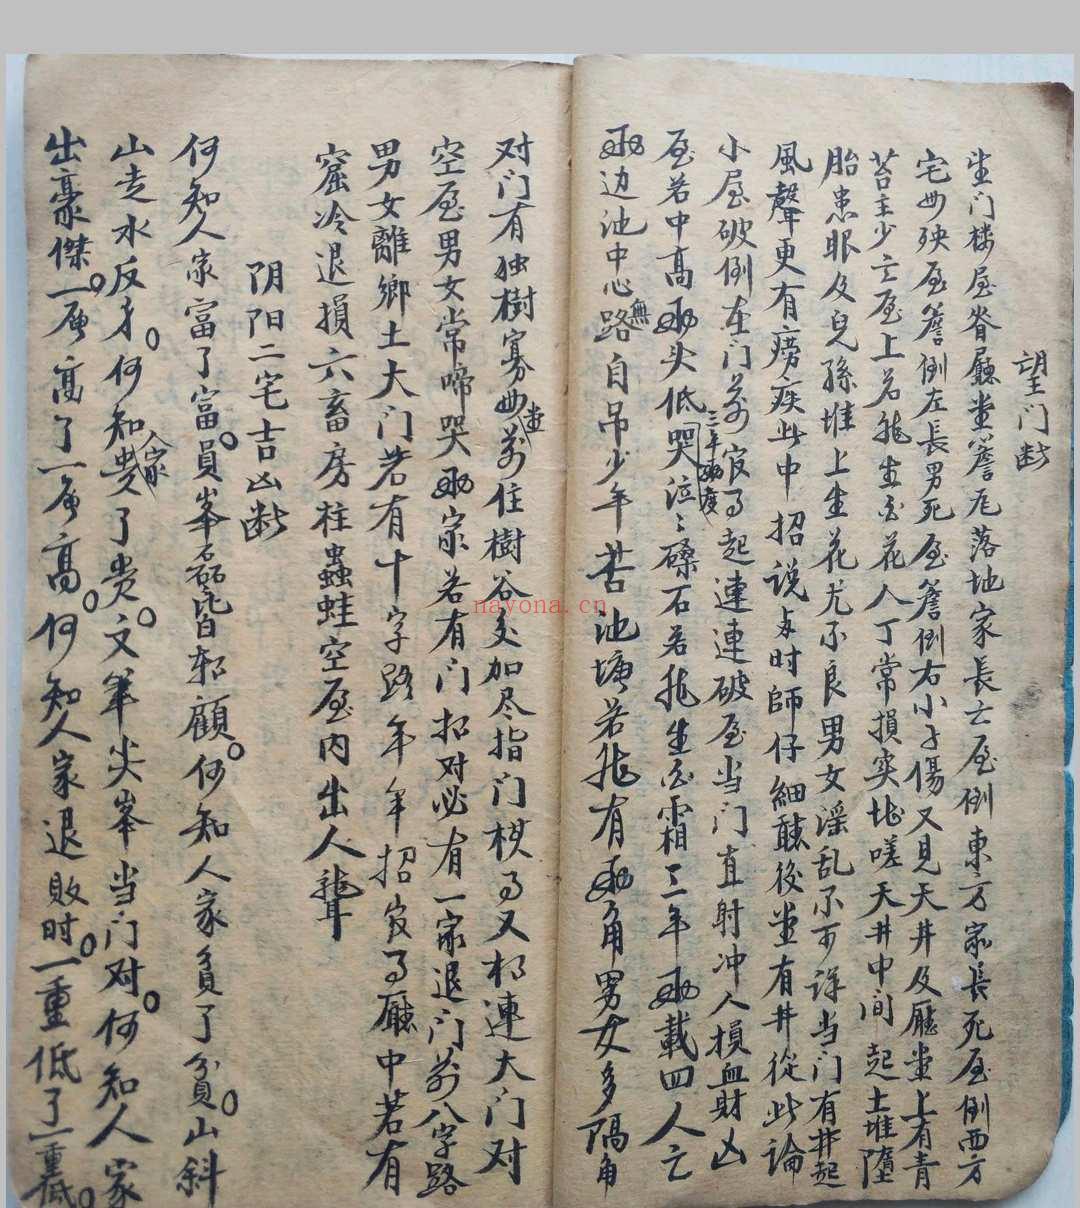 望门断
坐门楼屋脊廳堂簷瓦落地家長亡屋倒東方家長死屋倒西方
宅母殃屋簷倒左長男死屋簷倒右小子傷又見天井及廳堂上有青
苔主少亡屋上若生白花人丁常損突地嗟天井中間起土堆墮
胎患眼及兒孫堆上生花尤不良男女淫乱不可詳当门有井起
風聲更有痨疾此中招说与时師仔細聽後堂有井從此論
小屋破倒在门前官司起連連破屋当门直射冲人損血財凶
屋若中高两头低哭泣三年两度磉石若生白霜三年两載四人亡
两边池中心無路自吊少年苦池塘若有两角男女多隔角
对门有独樹寡母堂前住樹谷加尽指门棋司又相連大门对
空屋男女常啼哭两家若有门招对必有一家退门前八字路
男女離鄉土大门若有十字路年年招官司廳中若有
窟冷退損六畜房柱蟲蛀空屋内出人聾
阴阳二宅吉凶断
何知人家富了富員峯磊磊皆相顧何知人家貧了貧山斜
山走水反身何知人家贵了贵文笔尖峯当门对何知人家
出豪傑一層高了一層高何知人家退敗时一重低了一重低
nayona.cn